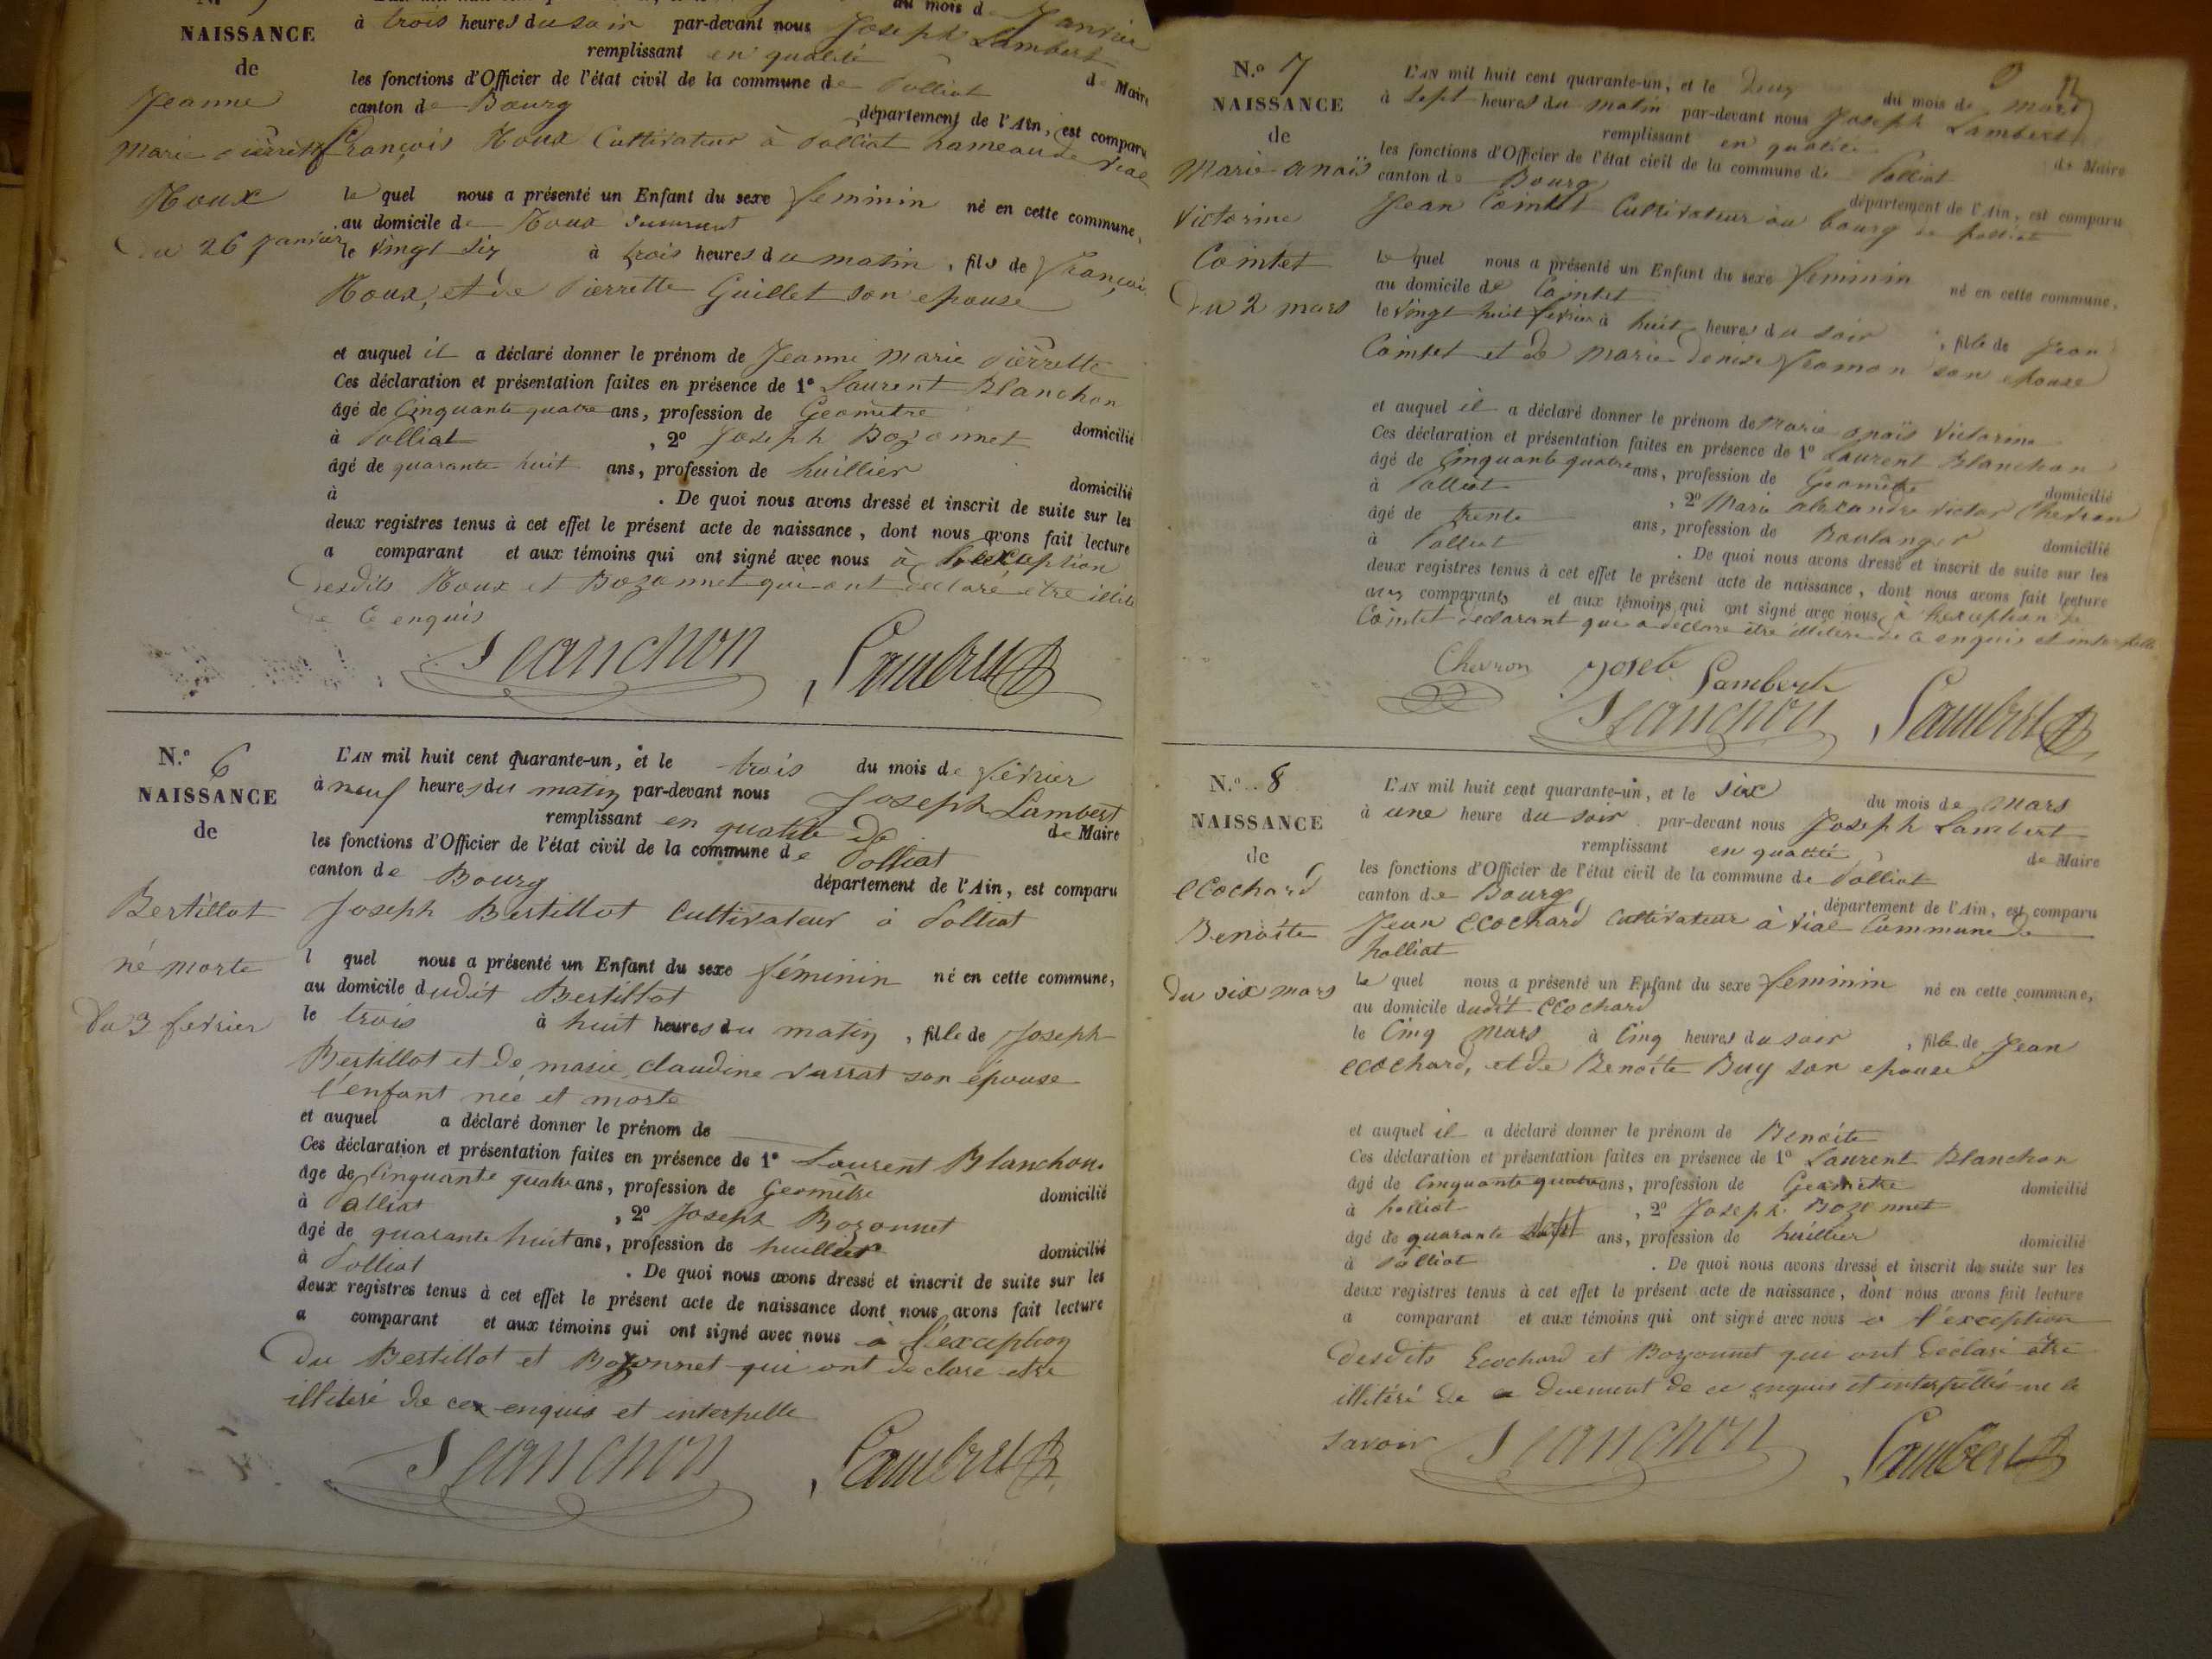 NAISSANCE
de
Jeanne
Marie Pierrette
Roux
du 26 Janvier
du mois de Janvier
à trois heures du soir par-devant nous Joseph Lambert
remplissant en qualité de Maire
les fonctions d'Officier de l'état civil de la commune de Polliat
canton de Bourg département de l'Ain, est comparu
François Roux Cultivateur à Polliat hameau de Vial
le quel nous a présenté un Enfant du sexe feminin né en cette commune,
au domicile de Roux
le vingt six à trois heures du matin, fils de François
Roux, et de Pierrette Guillet son epouse
et auquel il a déclaré donner le prénom de Jeanne Marie Pierrette
Ces déclaration et présentation faites en présence de 1º Laurent Blanchon
âgé de Cinquante quatre ans, profession de Geometre domicilié
à Polliat, 2º Joseph Bozonnet
âgé de quarante huit ans, profession de huillier domicilié
à . De quoi nous avons dressé et inscrit de suite sur les
deux registres tenus à cet effet le présent acte de naissance, dont nous avons fait lecture
a comparant et aux témoins qui ont signé avec nous à l'exception
desdits Roux et Bozonnet qui ont declaré être illit
de ce enquis
Blanchon Lambert
N.º 6
NAISSANCE
de
Bertillot
né morte
du 3 fevrier
L'AN mil huit cent quarante-un, et le trois du mois de fevrier
à neuf heures du matin par-devant nous Joseph Lambert
remplissant en qualité de de Maire
les fonctions d'Officier de l'état civil de la commune de Polliat
canton de Bourg département de l'Ain, est comparu
Joseph Bertillot Cultivateur à Polliat
l quel nous a présenté un Enfant du sexe féminin né en cette commune,
au domicile dudit Bertillot
le trois à huit heures du matin, fille de Joseph
Bertillot et de marie claudine son épouse
l'enfant née et morte
et auquel a déclaré donner le prénom de
Ces déclaration et présentation faites en présence de 1º Laurent Blanchon
âge de Cinquante quatre ans, profession de Geomêtre domicilié
à Polliat, 2º Joseph Bozonnet
âgé de quarante huit ans, profession de huillier domicilié
à Polliat . De quoi nous avons dressé et inscrit de suite sur les
deux registres tenus à cet effet le présent acte de naissance dont nous avons fait lecture
a comparant et aux témoins qui ont signé avec nous à l'exception
du Bertillot et Bozonnet qui ont declare etre
illiteré de ce enquis et interpelle
Blanchon Lambert
N.º 7
NAISSANCE
de
Marie anaïs
Victorine
Comtet
du 2 mars
L'AN mil huit cent quarante-un, et le deux du mois de mars
à sept heures du matin par-devant nous Joseph Lambert
remplissant en qualité de Maire
les fonctions d'Officier de l'état civil de la commune de Polliat
canton de Bourg département de l'Ain, est comparu
Jean Comtet Cultivateur au bourg de polliat
le quel nous a présenté un Enfant du sexe feminin né en cette commune,
au domicile de Comtet
le Vingt huit fevrier à huit heures du soir, fille de Jean
Comtet et de marie denise Fromon son epouse
et auquel il a déclaré donner le prénom de Marie anaïs Victorine
Ces déclaration et présentation faites en présence de 1º Laurent Blanchon
âgé de Cinquante quatre ans, profession de Geomêtre domicilié
à Polliat, 2º Marie alexandre victor Chevron
âgé de trente ans, profession de Boulanger domicilié
à Polliat . De quoi nous avons dressé et inscrit de suite sur les
deux registres tenus à cet effet le présent acte de naissance, dont nous avons fait lecture
aux comparants et aux témoins qui ont signé avec nous à l'exception de
Comtet declarant qui a declare être illiteré de ce enquis et interpelle
Chevron Joseph Lambert
Blanchon Lambert
N.º 8
NAISSANCE
de
Ecochard
Benoite
du six mars
L'AN mil huit cent quarante-un, et le six du mois de mars
à une heure du soir par-devant nous Joseph Lambert
remplissant en qualité de Maire
les fonctions d'Officier de l'état civil de la commune de Polliat
canton de Bourg département de l'Ain, est comparu
Jean Ecochard Cultivateur à Vial Commune de
Polliat
le quel nous a présenté un Enfant du sexe feminin né en cette commune,
au domicile dudit Ecochard
le Cinq mars à Cinq heures du soir, fille de Jean
Ecochard, et de Benoite Buy son epouse
et auquel il a déclaré donner le prénom de Benoite
Ces déclaration et présentation faites en présence de 1º Laurent Blanchon
âgé de Cinquante quatre ans, profession de Geometre domicilié
à Polliat, 2º Joseph Bozonnet
âgé de quarante ans, profession de huillier domicilié
à Polliat . De quoi nous avons dressé et inscrit de suite sur les
deux registres tenus à cet effet le présent acte de naissance, dont nous avons fait lecture
a comparant et aux témoins qui ont signé avec nous à l'exception
desdits Ecochard et Bozonnet qui ont déclaré etre
illitéré de duement de ce enquis et interpellés ne le
savoir Blanchon Lambert